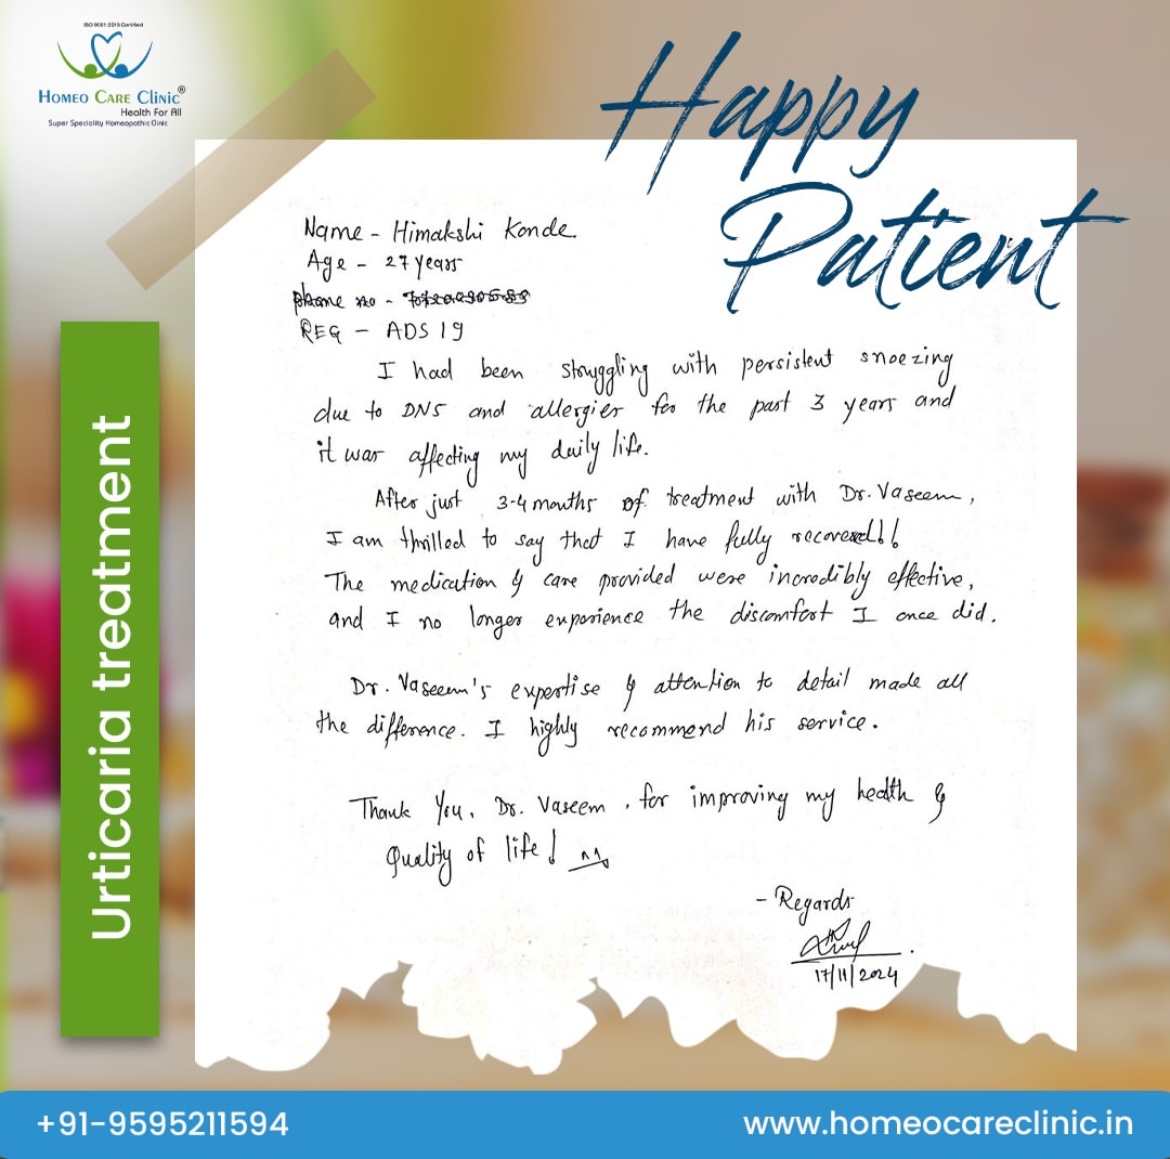 ISO 9001:2015 Certified
HOMEO CARE CLINIC®
Health For All
Super Speciality Homeopathic Clinic
Happy
Patient
Urticaria treatment
Name - Himakshi Konde.
Age - 27 years
phone no -
REG - ADS 19
I had been struggling with persistent sneezing
due to DNS and allergies for the past 3 years and
it was affecting my daily life.
After just 3-4 months of treatment with Dr. Vaseem,
I am thrilled to say that I have fully recovered!!
The medication & care provided were incredibly effective,
and I no longer experience the discomfort I once did.
Dr. Vaseem's expertise & attention to detail made all
the difference. I highly recommend his service.
Thank You, Dr. Vaseem, for improving my health &
Quality of life!
- Regards
17/11/2024
+91-9595211594
www.homeocareclinic.in